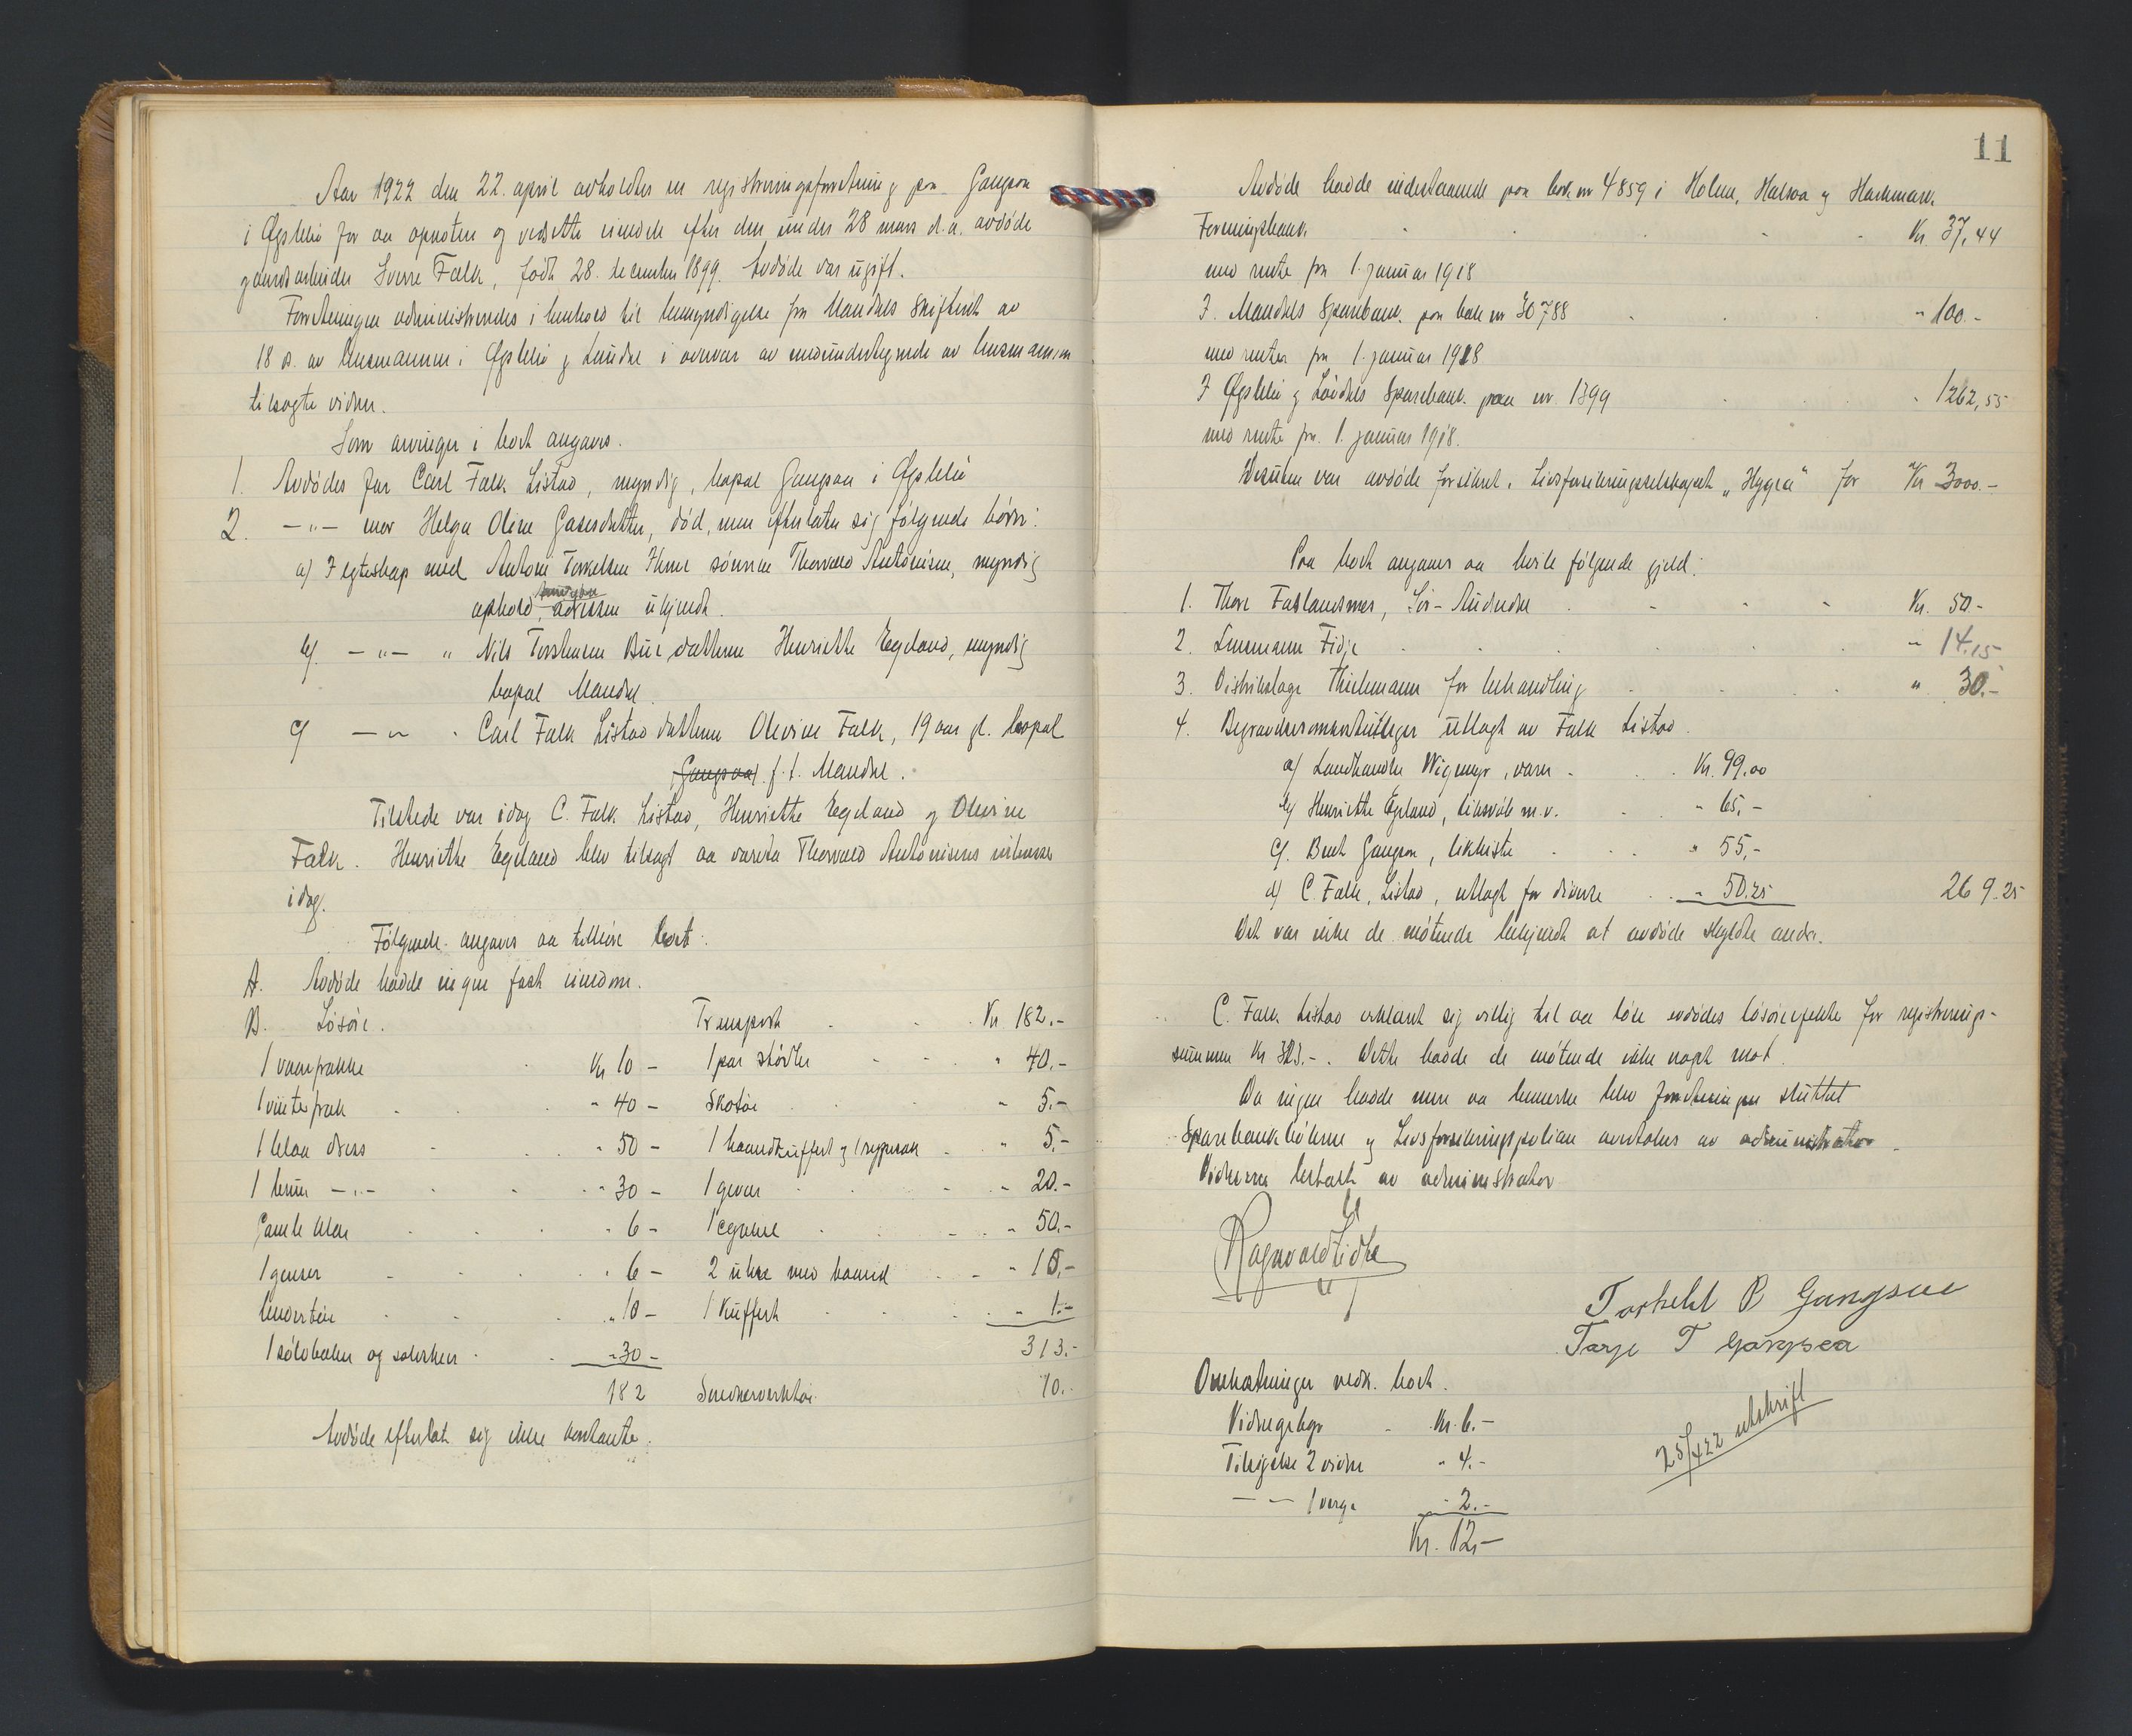 Aar 1922 den 22. april avholdtes en registreringsforretning paa Gangsaa
i Øyslebø for aa opnotere og verdsætte eiendele efter den under 28 mars d.a. avdøde
gaardsarbeider Sverre Falk, född 28. december 1899. Avdøde var ugift.
Forretningen administrertes i henhold til bemyndigelse fra Mandals Skifteret av
18 ds. av lensmannen i Øyslebø og Laudal i overvær av medundertegnede av lensmannen
tilsagte vidner.
Som arvinger i boet angaves.
1. Avdødes far Carl Falk Listad, myndig, bopæl Gangsaa i Øyslebø
2. -"- mor Helga Oline Gabrielsdatter, død, men efterlatt sig følgende børn:
a) I egteskap med Antoni Torkelsen sønnen Thorvald Antonisen, myndig
ophold, adressen ukjendt.
b) -"- " Nils Torstensen Bue datteren Henriette Egeland, myndig
bopæl Mandal.
c) -"- " Carl Falk Listad datteren Olevine Falk, 19 aar gl. bopæl
Gangsaa f.t. Mandal.
Tilstede var idag C. Falk Listad, Henriette Egeland og Olevine
Falk. Henriette Egeland blev tilsagt aa vareta Thorvald Antonisens interesser
idag.
Følgende angaves aa tilhøre boet:
A. Avdøde hadde ingen fast eiendom.
B. Løsøre.
1 vaarfrakke Kr 10 -
1 vinterfrak " 40 -
1 blaa dress " 50 -
1 brun -"- " 30 -
Gamle klær " 6 -
1 genser " 6 -
Undertøi " 10 -
1 sølvbæger og solvskeer " 30 -
182
Avdøde efterlot sig ikke kontanter.
Transport Kr 182.-
1 par støvler " 40.-
Skotøi " 5.-
1 haandkuffert og 1 rygsæk " 5.-
1 gevær " 20.-
1 cykkel " 50.-
2 uhre med baand " 10,-
1 Kuffert " 1.-
313.-
Snedkerverktøi 10.-
11
Avdøde hadde indestaaende paa bok nr 4859 i Holum, Halsaa og Harkmark
Foreningsbank Kr 37,44
med rente fra 1. januar 1918
I Mandals Sparebank paa bok nr 30788 " 100.-
med renter fra 1. januar 1918
I Øyslebø og Laudals Sparebank paa nr 1399 " 1262,55
med rente fra 1. januar 1918.
Desuten var avdøde forsikret i Livsforsikringsselskapet „Hygea" for Kr 3000.-
Paa boet angaves aa hvile følgende gjeld:
1. Thore Faslandsmo, Sør-Audnedal Kr. 50.-
2. Lensmann Fidje " 14.15
3. Distriktslæge Thielemann for behandling " 30.-
4. Begravelsesomkostninger utlagt av Falk Listad.
a) Landhandler Wigemyr, varer Kr. 99.00
b) Henriette Egeland, liksvøb m.v. " 65,-
c) Berit Gangsaa, likkiste " 55,-
d) C. Falk, Listad, utlagt for diverse " 50.25 269.25
Det var ikke de møtende bekjendt at avdøde skyldte andre.
C. Falk Listad erklært sig villig til aa løse avdødes løsøreeffekter for registrerings-
summen Kr 323.-. Dette hadde de møtende ikke noget mot.
Da ingen hadde mere aa bemerke blev forretningen sluttet
Sparebankbøkene og Livsforsikringspolisen overtokes av administrator.
Vidnerne betalt av administrator
Ragnvald Fidje
Torkeld P Gangsaa
Tarje T Gangsaa
Omkostninger vedk. boet.
Vidnegebyr Kr. 6.-
Tilsigelse 2 vidner " 4.-
-"- 1 verge " 2.-
Kr. 12,-
25/4 22 utskrift